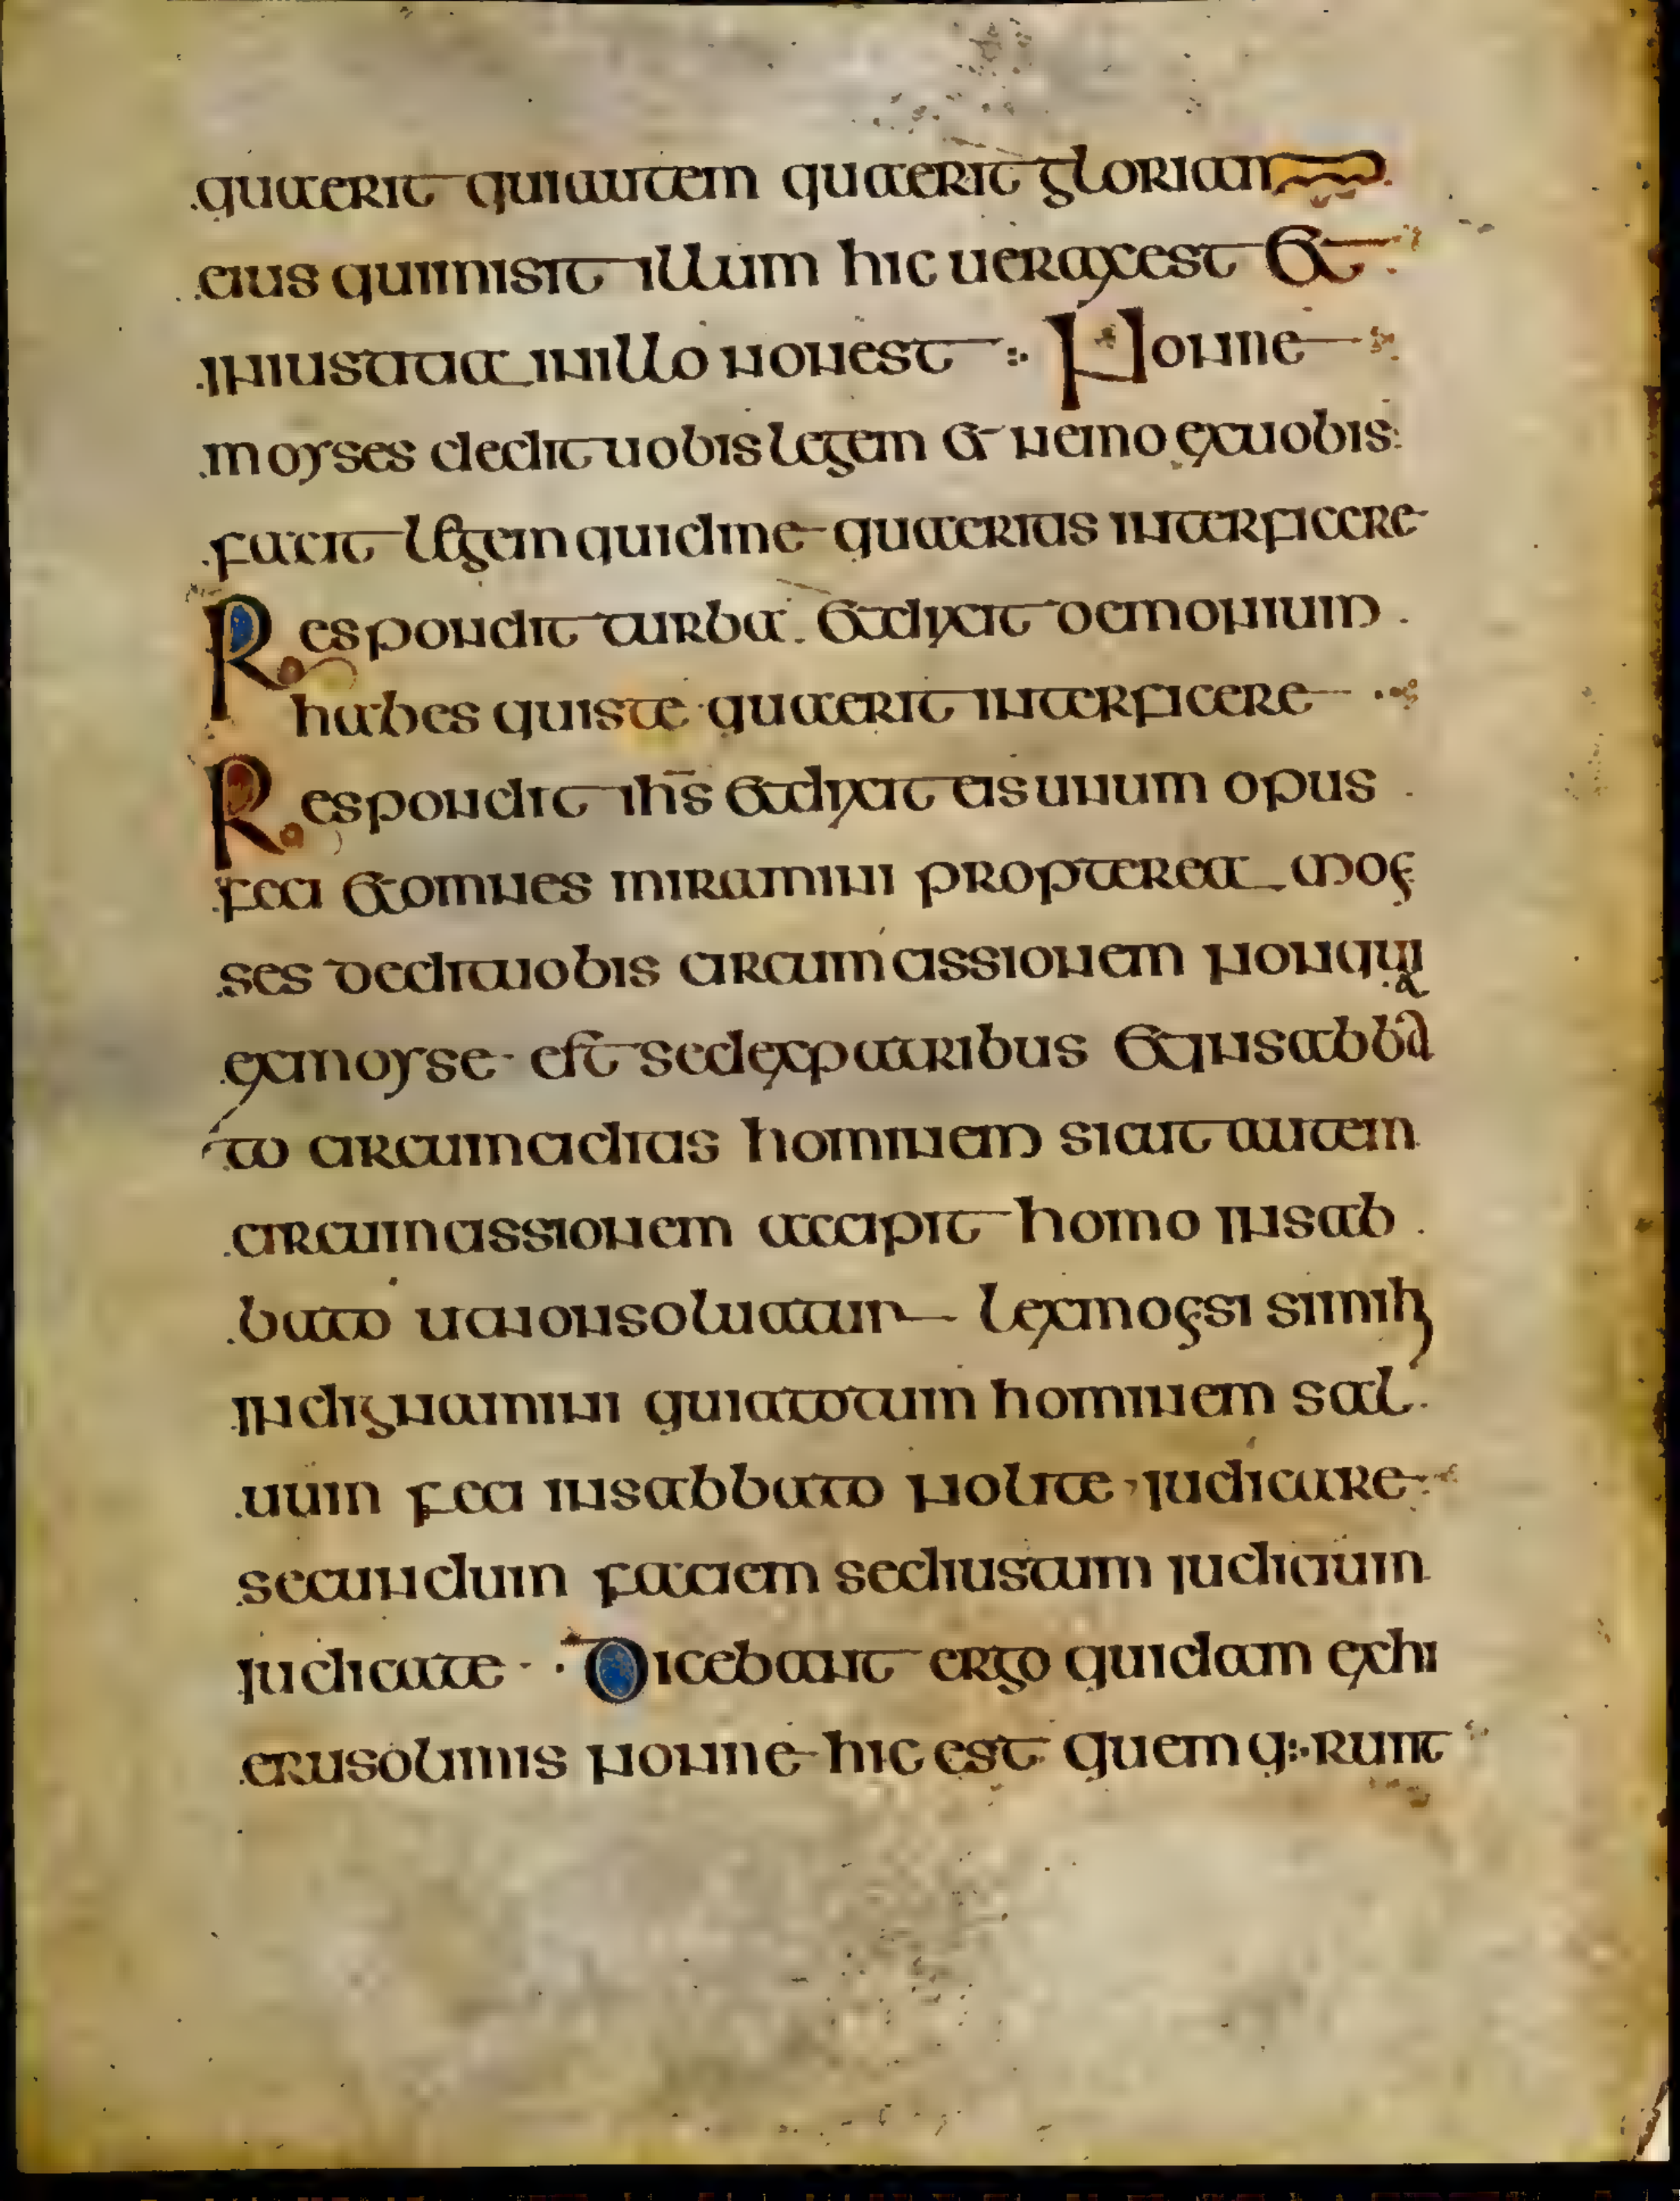 quaerit qui autem quaerit gloriam
eius qui misit illum hic uerax est et
iniustitia in illo non est Nonne
moyses dedit uobis legem et nemo ex uobis
facit legem quid me quaeritis interficere
Respondit turba et dixit demonium
habes quis te quaerit interficere
Respondit ihs̄ et dixit eis unum opus
feci et omnes miramini propterea moy
ses dedit uobis circumcissionem non qui
ex moyse est sed ex patribus et in sabba
to circumciditis hominem sicut autem
circumcissionem accipit homo in sab
bato ut non soluatur lex moysi si mihi
indignamini quia totum hominem sal
uum feci in sabbato nolite iudicare
secundum faciem sed iustum iudicium
iudicate Dicebant ergo quidam ex hi
erusolimis nonne hic est quem q:·runt